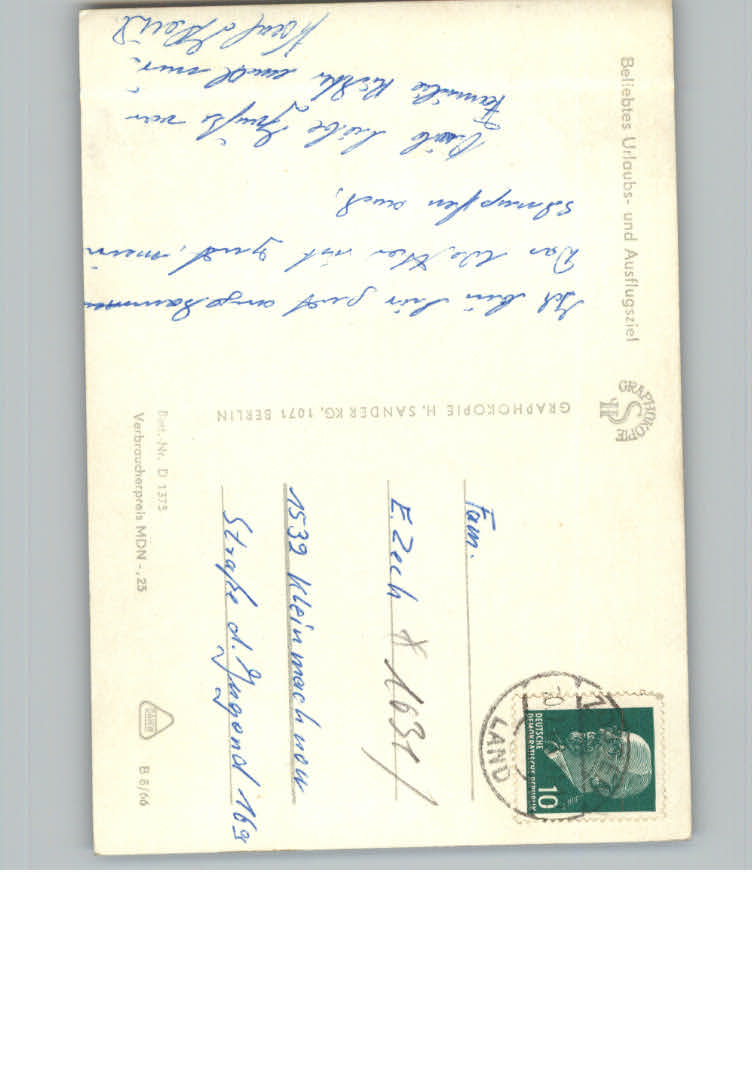 Beliebtes Urlaubs- und Ausflugsziel
Ich bin hir gut angekommen
Das Wetter ist gut, mein
Schnupfen auch.
Liebe Grüße von
Familie und mir.
GRAPHOKOPIE
GRAPHOKOPIE H. SANDER KG, 1071 BERLIN
Best.-Nr. D 1375
Verbraucherpreis MDN -,25
Fam.
E. Zech
1631
1532 Kleinmachnow
Straße d. Jugend 169
DEUTSCHE
DEMOKRATISCHE REPUBLIK
10
LAND
B 8/66